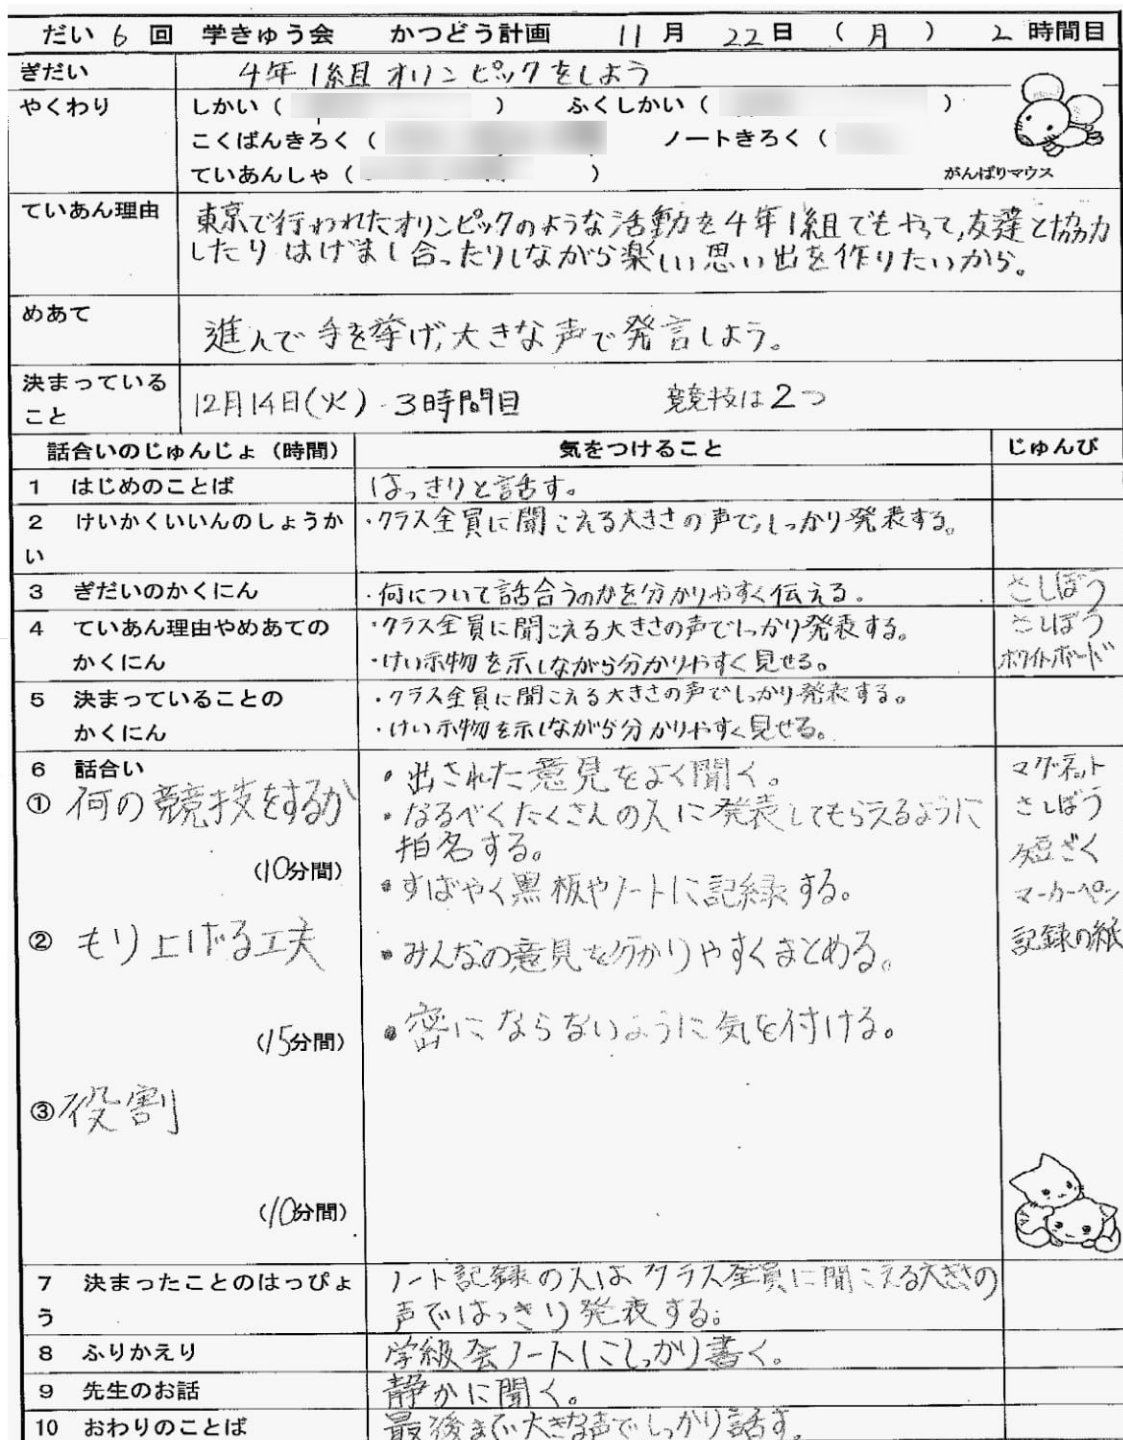 だい 6 回 学きゅう会 かつどう計画 11 月 22 日 ( 月 ) 2 時間目
ぎだい 4年1組オリンピックをしよう
やくわり しかい ( ) ふくしかい ( )
こくばんきろく ( ノートきろく (
ていあんしゃ ( )
がんばりマウス
ていあん理由 東京で行われたオリンピックのような活動を4年1組でもやって,友達と協力
したりはげまし合ったりしながら楽しい思い出を作りたいから。
めあて 進んで手を挙げ,大きな声で発言しよう。
決まっている
こと 12月14日(火)・3時間目 競技は2つ
話合いのじゅんじょ(時間) 気をつけること じゅんび
1 はじめのことば はっきりと話す。
2 けいかくいいんのしょうか ・クラス全員に聞こえる大きさの声で,しっかり発表する。
い
3 ぎだいのかくにん ・何について話合うのかを分かりやすく伝える。 さしぼう
4 ていあん理由やめあての ・クラス全員に聞こえる大きさの声でしっかり発表する。 さしぼう
かくにん ・けい示物を示しながら分かりやすく見せる。 ホワイトボード
5 決まっていることの ・クラス全員に聞こえる大きさの声でしっかり発表する。
かくにん ・けい示物を示しながら分かりやすく見せる。
6 話合い ・出された意見をよく聞く。 マグネット
① 何の競技をするか ・なるべくたくさんの人に発表してもらえるように さしぼう
指名する。 短ざく
(10分間) ・すばやく黒板やノートに記録する。 マーカーペン
② もり上げる工夫 ・みんなの意見を分かりやすくまとめる。 記録の紙
(15分間) ・密にならないように気を付ける。
③ 役割
(10分間)
7 決まったことのはっぴょ ノート記録の人はクラス全員に聞こえる大きさの
う 声ではっきり発表する。
8 ふりかえり 学級会ノートにしっかり書く。
9 先生のお話 静かに聞く。
10 おわりのことば 最後まで大きな声でしっかり話す。